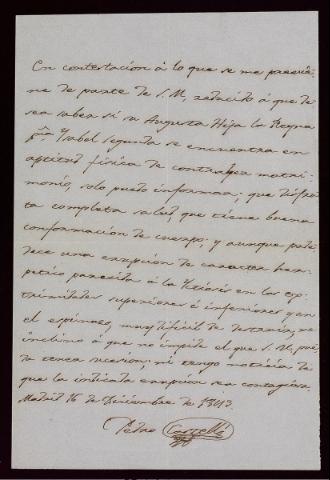 En contestacion á lo que se me previe-
ne de parte de S.M, reducido á que de-
sea saber si su Augusta Hija la Reyna
Dª Ysabel segunda se encuentra en
aptitud fisica de contraher matri-
monio, solo puedo informar; que disfru-
ta completa salud, que tiene buena
conformacion de cuerpo; y aunque pade-
dece una erupcion de caracter her-
petico parecida á la Ictiosis en las ex-
tremidades superiores é inferiores y en
el espinazo, muy dificil de destruir, me
inclino á que no impide el que S.M. pue-
da tener sucesion; ni tengo noticia de
que la indicada erupcion sea contagiosa.
Madrid 16 de Diciembre de 1843.
Pedro Castelló